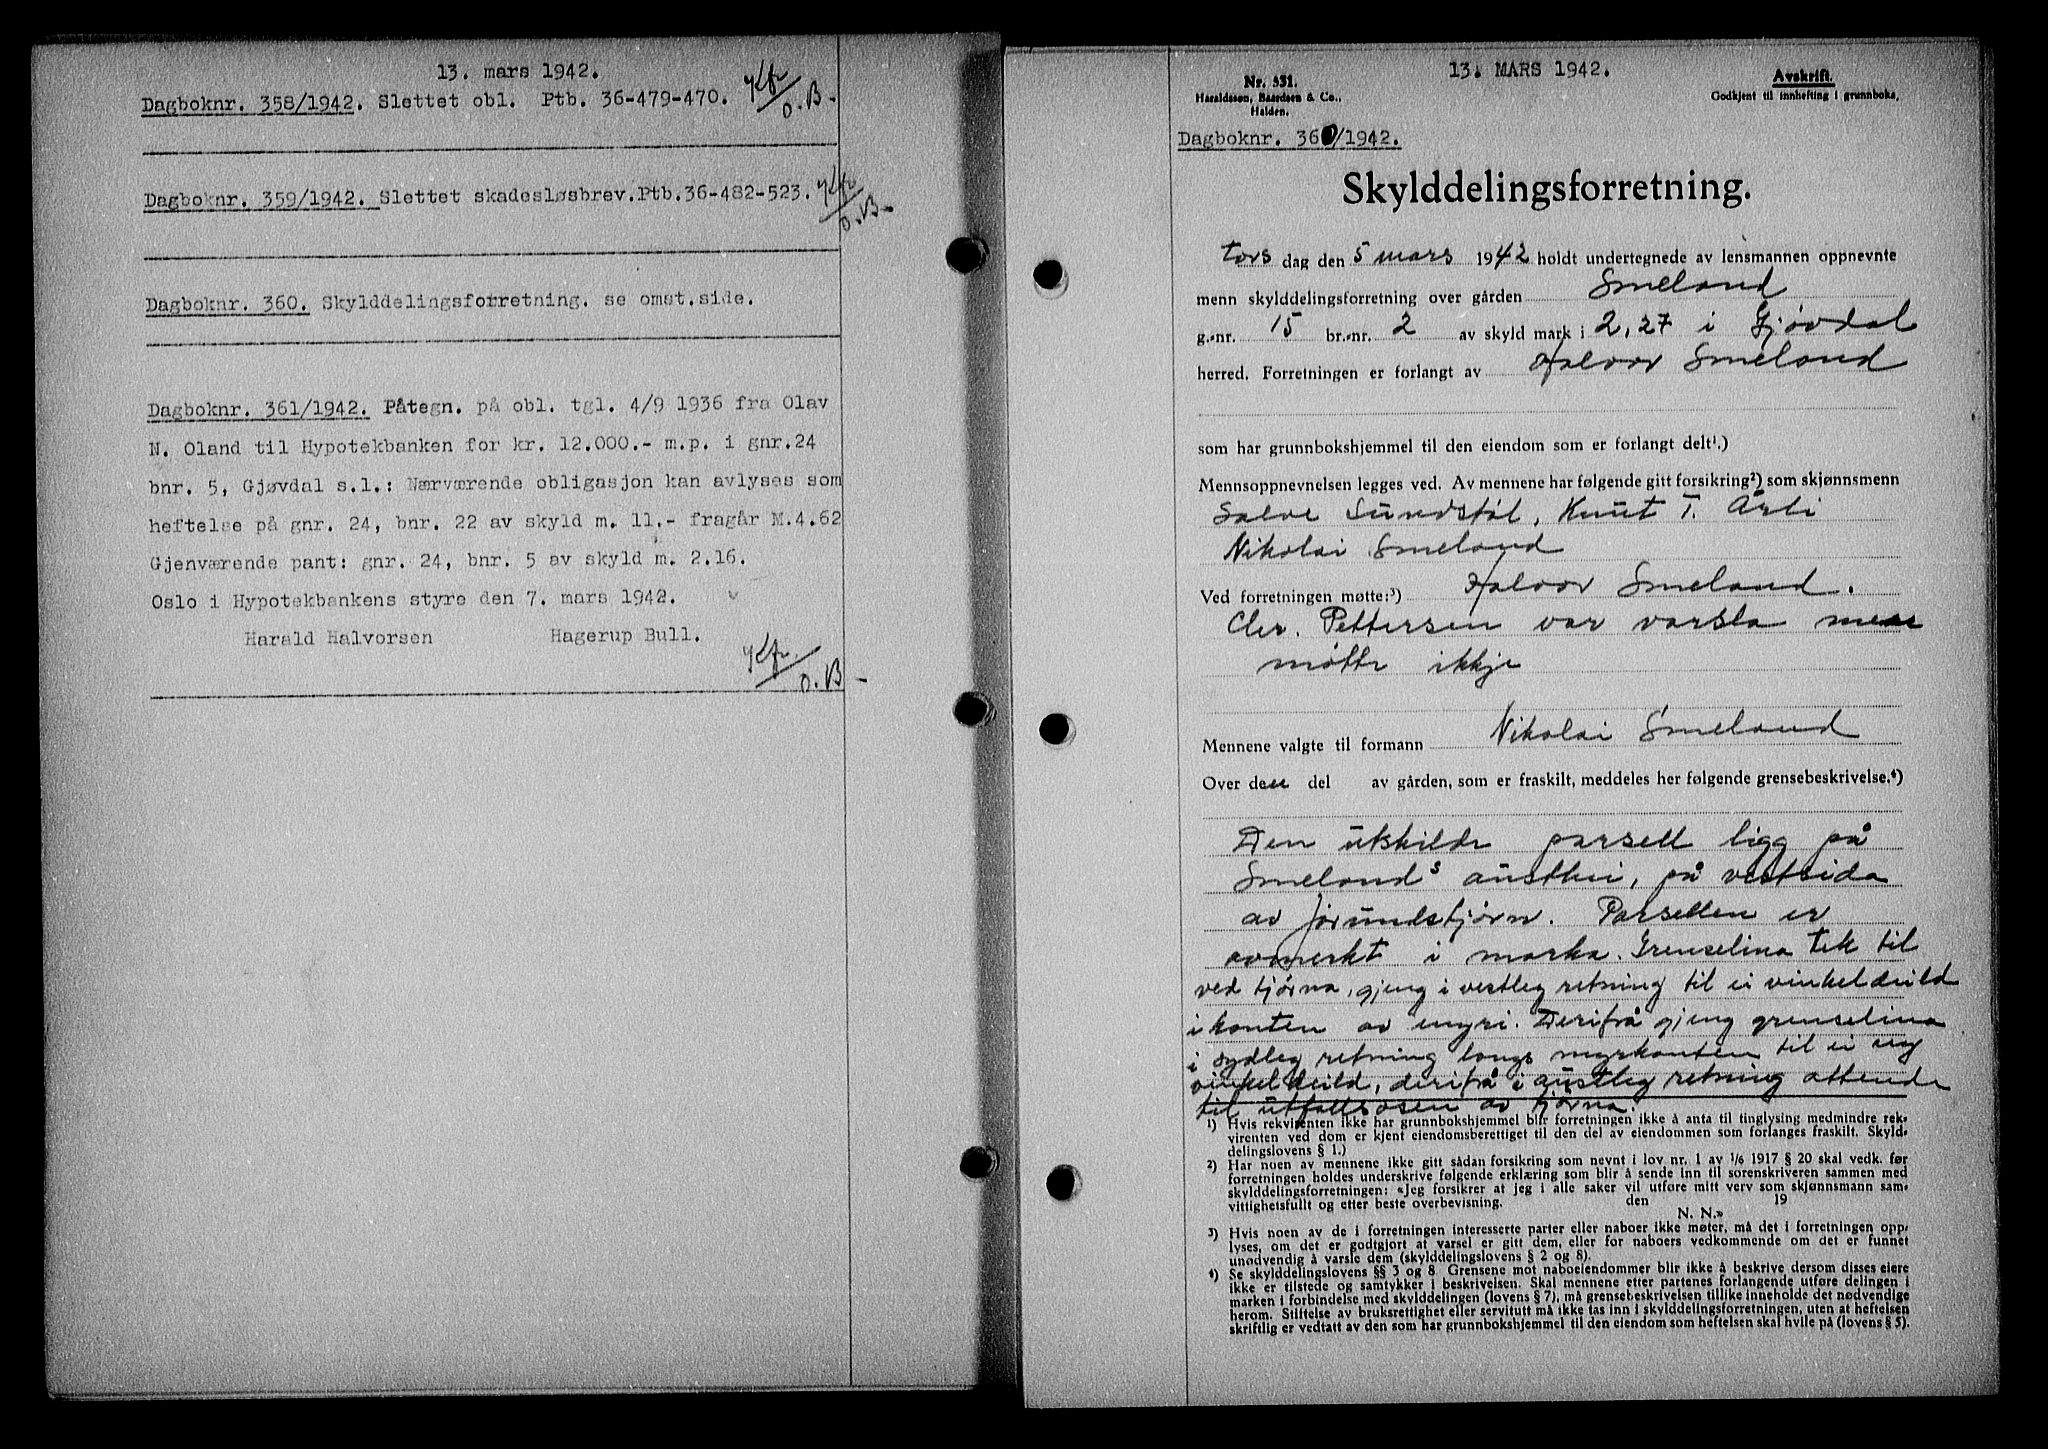 13. mars 1942.
Dagboknr. 358/1942. Slettet obl. Ptb. 36-479-470.
O.B-
Dagboknr. 359/1942. Slettet skadesløsbrev. Ptb.36-482-523.
O.B-
Dagboknr. 360. Skylddelingsforretning. se omst.side.
Dagboknr. 361/1942. Påtegn. på obl. tgl. 4/9 1936 fra Olav
N. Oland til Hypotekbanken for kr. 12.000.- m.p. i gnr.24
bnr. 5, Gjøvdal s.l.: Nærværende obligasjon kan avlyses som
heftelse på gnr. 24, bnr. 22 av skyld m. 11.- fragår M.4.62
Gjenværende pant: gnr. 24, bnr. 5 av skyld m. 2.16.
Oslo i Hypotekbankens styre den 7. mars 1942.
Harald Halvorsen Hagerup Bull.
O.B-
13. MARS 1942.
Nr. 531.
Haraldssen, Baardsen & Co.,
Halden.
Avskrift.
Godkjent til innhefting i grunnboka,
Dagboknr. 360/1942.
Skylddelingsforretning.
Tors dag den 5 mars 1942 holdt undertegnede av lensmannen oppnevnte
menn skylddelingsforretning over gården Smeland
g.-nr. 15 br.-nr. 2 av skyld mark i 2,27 i Gjøvdal
herred. Forretningen er forlangt av Halvor Smeland
som har grunnbokshjemmel til den eiendom som er forlangt delt¹.)
Mennsoppnevnelsen legges ved. Av mennene har følgende gitt forsikring²) som skjønnsmenn
Salve Sundstøl, Knut T. Årli
Nikolai Smeland
Ved forretningen møtte:³) Halvor Smeland.
Chr. Pettersen var varsla men
møtte ikkje
Mennene valgte til formann Nikolai Smeland
Over den del av gården, som er fraskilt, meddeles her følgende grensebeskrivelse.⁴)
Den utskilde parsell ligg på
Smelands austhei, på vestsida
av Jørundstjørn. Parsellen er
avmerkt i marka. Grenselina tek til
ved tjørna, gjeng i vestleg retning til ei vinkeldeild
i kanten av myri. Derifrå gjeng grenselina
i sydleg retning langs myrkanten til ei ny
vinkeldeild, derifrå i austleg retning attende
til utfallsosen av tjørna.
1) Hvis rekvirenten ikke har grunnbokshjemmel blir forretningen ikke å anta til tinglysing medmindre rek-
virenten ved dom er kjent eiendomsberettiget til den del av eiendommen som forlanges fraskilt. Skyld-
delingslovens § 1.)
2) Har noen av mennene ikke gitt sådan forsikring som nevnt i lov nr. 1 av 1/6 1917 § 20 skal vedk. før
forretningen holdes underskrive følgende erklæring som blir å sende inn til sorenskriveren sammen med
skylddelingsforretningen: «Jeg forsikrer at jeg i alle saker vil utføre mitt verv som skjønnsmann sam-
vittighetsfullt og etter beste overbevisning. den 19
N. N.»
3) Hvis noen av de i forretningen interesserte parter eller naboer ikke møter, må det i forretningen opp-
lyses, om det er godtgjort at varsel er gitt dem, eller for naboers vedkommende om det er funnet
unødvendig å varsle dem (skylddelingslovens § 2 og 8).
4) Se skylddelingslovens §§ 3 og 8. Grensene mot naboeiendommer blir ikke å beskrive dersom disses eiere
ikke er tilstede og samtykker i beskrivelsen. Skal mennene etter partenes forlangende utføre delingen i
marken i forbindelse med skylddelingen (lovens § 7), må grensebeskrivelsen tillike inneholde det nødvendige
herom. Stiftelse av bruksrettighet eller servitutt må ikke tas inn i skylddelingsforretningen, uten at heftelsen
skriftlig er vedtatt av den som har grunnbokshjemmel til den eiendom som heftelsen skal hvile på (lovens § 5).